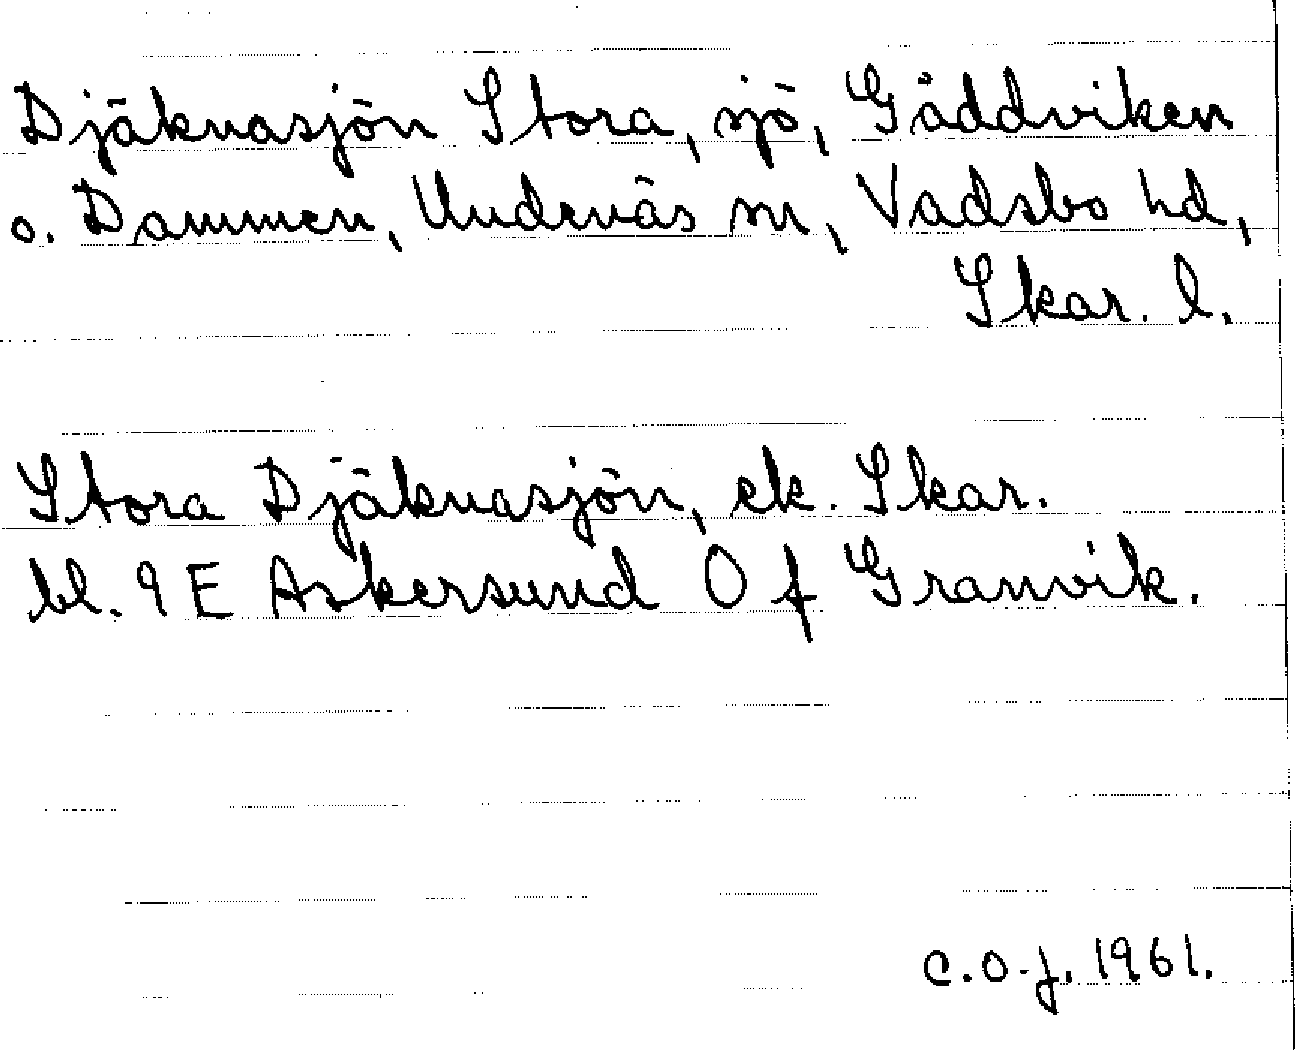 Djäknasjön Stora, sjö, Gäddviken
o. Dammen, Undenäs sn, Vadsbo hd,
Skar. l.
Stora Djäknasjön, ek. Skar.
bl. 9 E Askersund 0 f Granvik.
C.O.J. 1961.